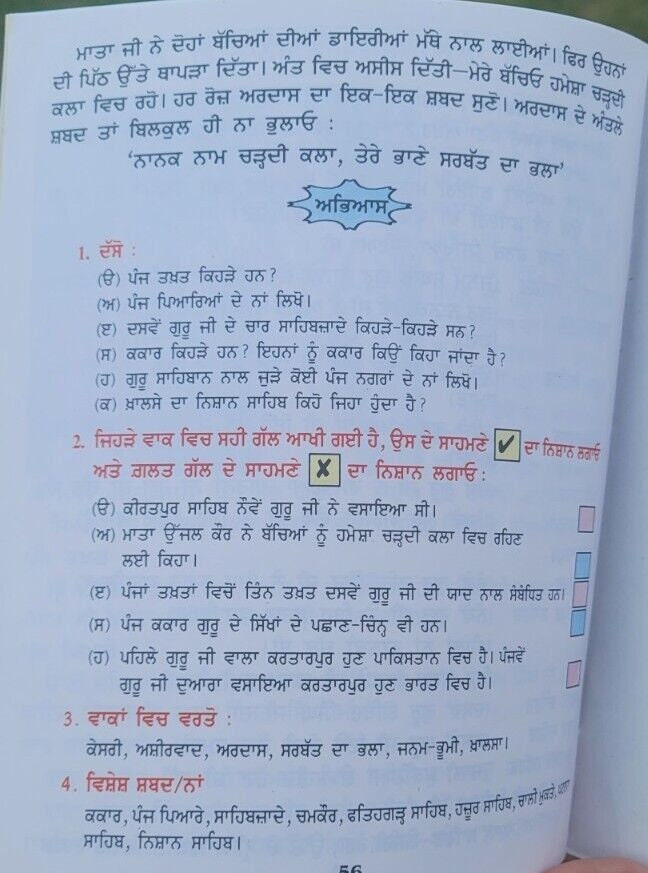 ਮਾਤਾ ਜੀ ਨੇ ਦੋਹਾਂ ਬੱਚਿਆਂ ਦੀਆਂ ਡਾਇਰੀਆਂ ਮੱਥੇ ਨਾਲ ਲਾਈਆਂ। ਫਿਰ ਉਹਨਾਂ
ਦੀ ਪਿੱਠ ਉੱਤੇ ਥਾਪੜਾ ਦਿੱਤਾ। ਅੰਤ ਵਿਚ ਅਸੀਸ ਦਿੱਤੀ—ਮੇਰੇ ਬੱਚਿਓ ਹਮੇਸ਼ਾ ਚੜ੍ਹਦੀ
ਕਲਾ ਵਿਚ ਰਹੋ। ਹਰ ਰੋਜ਼ ਅਰਦਾਸ ਦਾ ਇਕ-ਇਕ ਸ਼ਬਦ ਸੁਣੋ। ਅਰਦਾਸ ਦੇ ਅੰਤਲੇ
ਸ਼ਬਦ ਤਾਂ ਬਿਲਕੁਲ ਹੀ ਨਾ ਭੁਲਾਓ :
'ਨਾਨਕ ਨਾਮ ਚੜ੍ਹਦੀ ਕਲਾ, ਤੇਰੇ ਭਾਣੇ ਸਰਬੱਤ ਦਾ ਭਲਾ'
ਅਭਿਆਸ
1. ਦੱਸੋ :
(ੳ) ਪੰਜ ਤਖ਼ਤ ਕਿਹੜੇ ਹਨ?
(ਅ) ਪੰਜ ਪਿਆਰਿਆਂ ਦੇ ਨਾਂ ਲਿਖੋ।
(ੲ) ਦਸਵੇਂ ਗੁਰੂ ਜੀ ਦੇ ਚਾਰ ਸਾਹਿਬਜ਼ਾਦੇ ਕਿਹੜੇ-ਕਿਹੜੇ ਸਨ?
(ਸ) ਕਕਾਰ ਕਿਹੜੇ ਹਨ? ਇਹਨਾਂ ਨੂੰ ਕਕਾਰ ਕਿਉਂ ਕਿਹਾ ਜਾਂਦਾ ਹੈ?
(ਹ) ਗੁਰੂ ਸਾਹਿਬਾਨ ਨਾਲ ਜੁੜੇ ਕੋਈ ਪੰਜ ਨਗਰਾਂ ਦੇ ਨਾਂ ਲਿਖੋ।
(ਕ) ਖ਼ਾਲਸੇ ਦਾ ਨਿਸ਼ਾਨ ਸਾਹਿਬ ਕਿਹੋ ਜਿਹਾ ਹੁੰਦਾ ਹੈ?
2. ਜਿਹੜੇ ਵਾਕ ਵਿਚ ਸਹੀ ਗੱਲ ਆਖੀ ਗਈ ਹੈ, ਉਸ ਦੇ ਸਾਹਮਣੇ ✓ ਦਾ ਨਿਸ਼ਾਨ ਲਗਾਓ
ਅਤੇ ਗ਼ਲਤ ਗੱਲ ਦੇ ਸਾਹਮਣੇ ✗ ਦਾ ਨਿਸ਼ਾਨ ਲਗਾਓ :
(ੳ) ਕੀਰਤਪੁਰ ਸਾਹਿਬ ਨੌਵੇਂ ਗੁਰੂ ਜੀ ਨੇ ਵਸਾਇਆ ਸੀ।
(ਅ) ਮਾਤਾ ਉੱਜਲ ਕੌਰ ਨੇ ਬੱਚਿਆਂ ਨੂੰ ਹਮੇਸ਼ਾ ਚੜ੍ਹਦੀ ਕਲਾ ਵਿਚ ਰਹਿਣ
ਲਈ ਕਿਹਾ।
(ੲ) ਪੰਜਾਂ ਤਖ਼ਤਾਂ ਵਿਚੋਂ ਤਿੰਨ ਤਖ਼ਤ ਦਸਵੇਂ ਗੁਰੂ ਜੀ ਦੀ ਯਾਦ ਨਾਲ ਸੰਬੰਧਿਤ ਹਨ।
(ਸ) ਪੰਜ ਕਕਾਰ ਗੁਰੂ ਦੇ ਸਿੱਖਾਂ ਦੇ ਪਛਾਣ-ਚਿੰਨ੍ਹ ਵੀ ਹਨ।
(ਹ) ਪਹਿਲੇ ਗੁਰੂ ਜੀ ਵਾਲਾ ਕਰਤਾਰਪੁਰ ਹੁਣ ਪਾਕਿਸਤਾਨ ਵਿਚ ਹੈ। ਪੰਜਵੇਂ
ਗੁਰੂ ਜੀ ਦੁਆਰਾ ਵਸਾਇਆ ਕਰਤਾਰਪੁਰ ਹੁਣ ਭਾਰਤ ਵਿਚ ਹੈ।
3. ਵਾਕਾਂ ਵਿਚ ਵਰਤੋ :
ਕੇਸਰੀ, ਅਸ਼ੀਰਵਾਦ, ਅਰਦਾਸ, ਸਰਬੱਤ ਦਾ ਭਲਾ, ਜਨਮ-ਭੂਮੀ, ਖ਼ਾਲਸਾ।
4. ਵਿਸ਼ੇਸ਼ ਸ਼ਬਦ/ਨਾਂ
ਕਕਾਰ, ਪੰਜ ਪਿਆਰੇ, ਸਾਹਿਬਜ਼ਾਦੇ, ਚਮਕੌਰ, ਫਤਿਹਗੜ੍ਹ ਸਾਹਿਬ, ਹਜ਼ੂਰ ਸਾਹਿਬ, ਚਾਲੀ ਮੁਕਤੇ, ਪਟਨਾ
ਸਾਹਿਬ, ਨਿਸ਼ਾਨ ਸਾਹਿਬ।
56